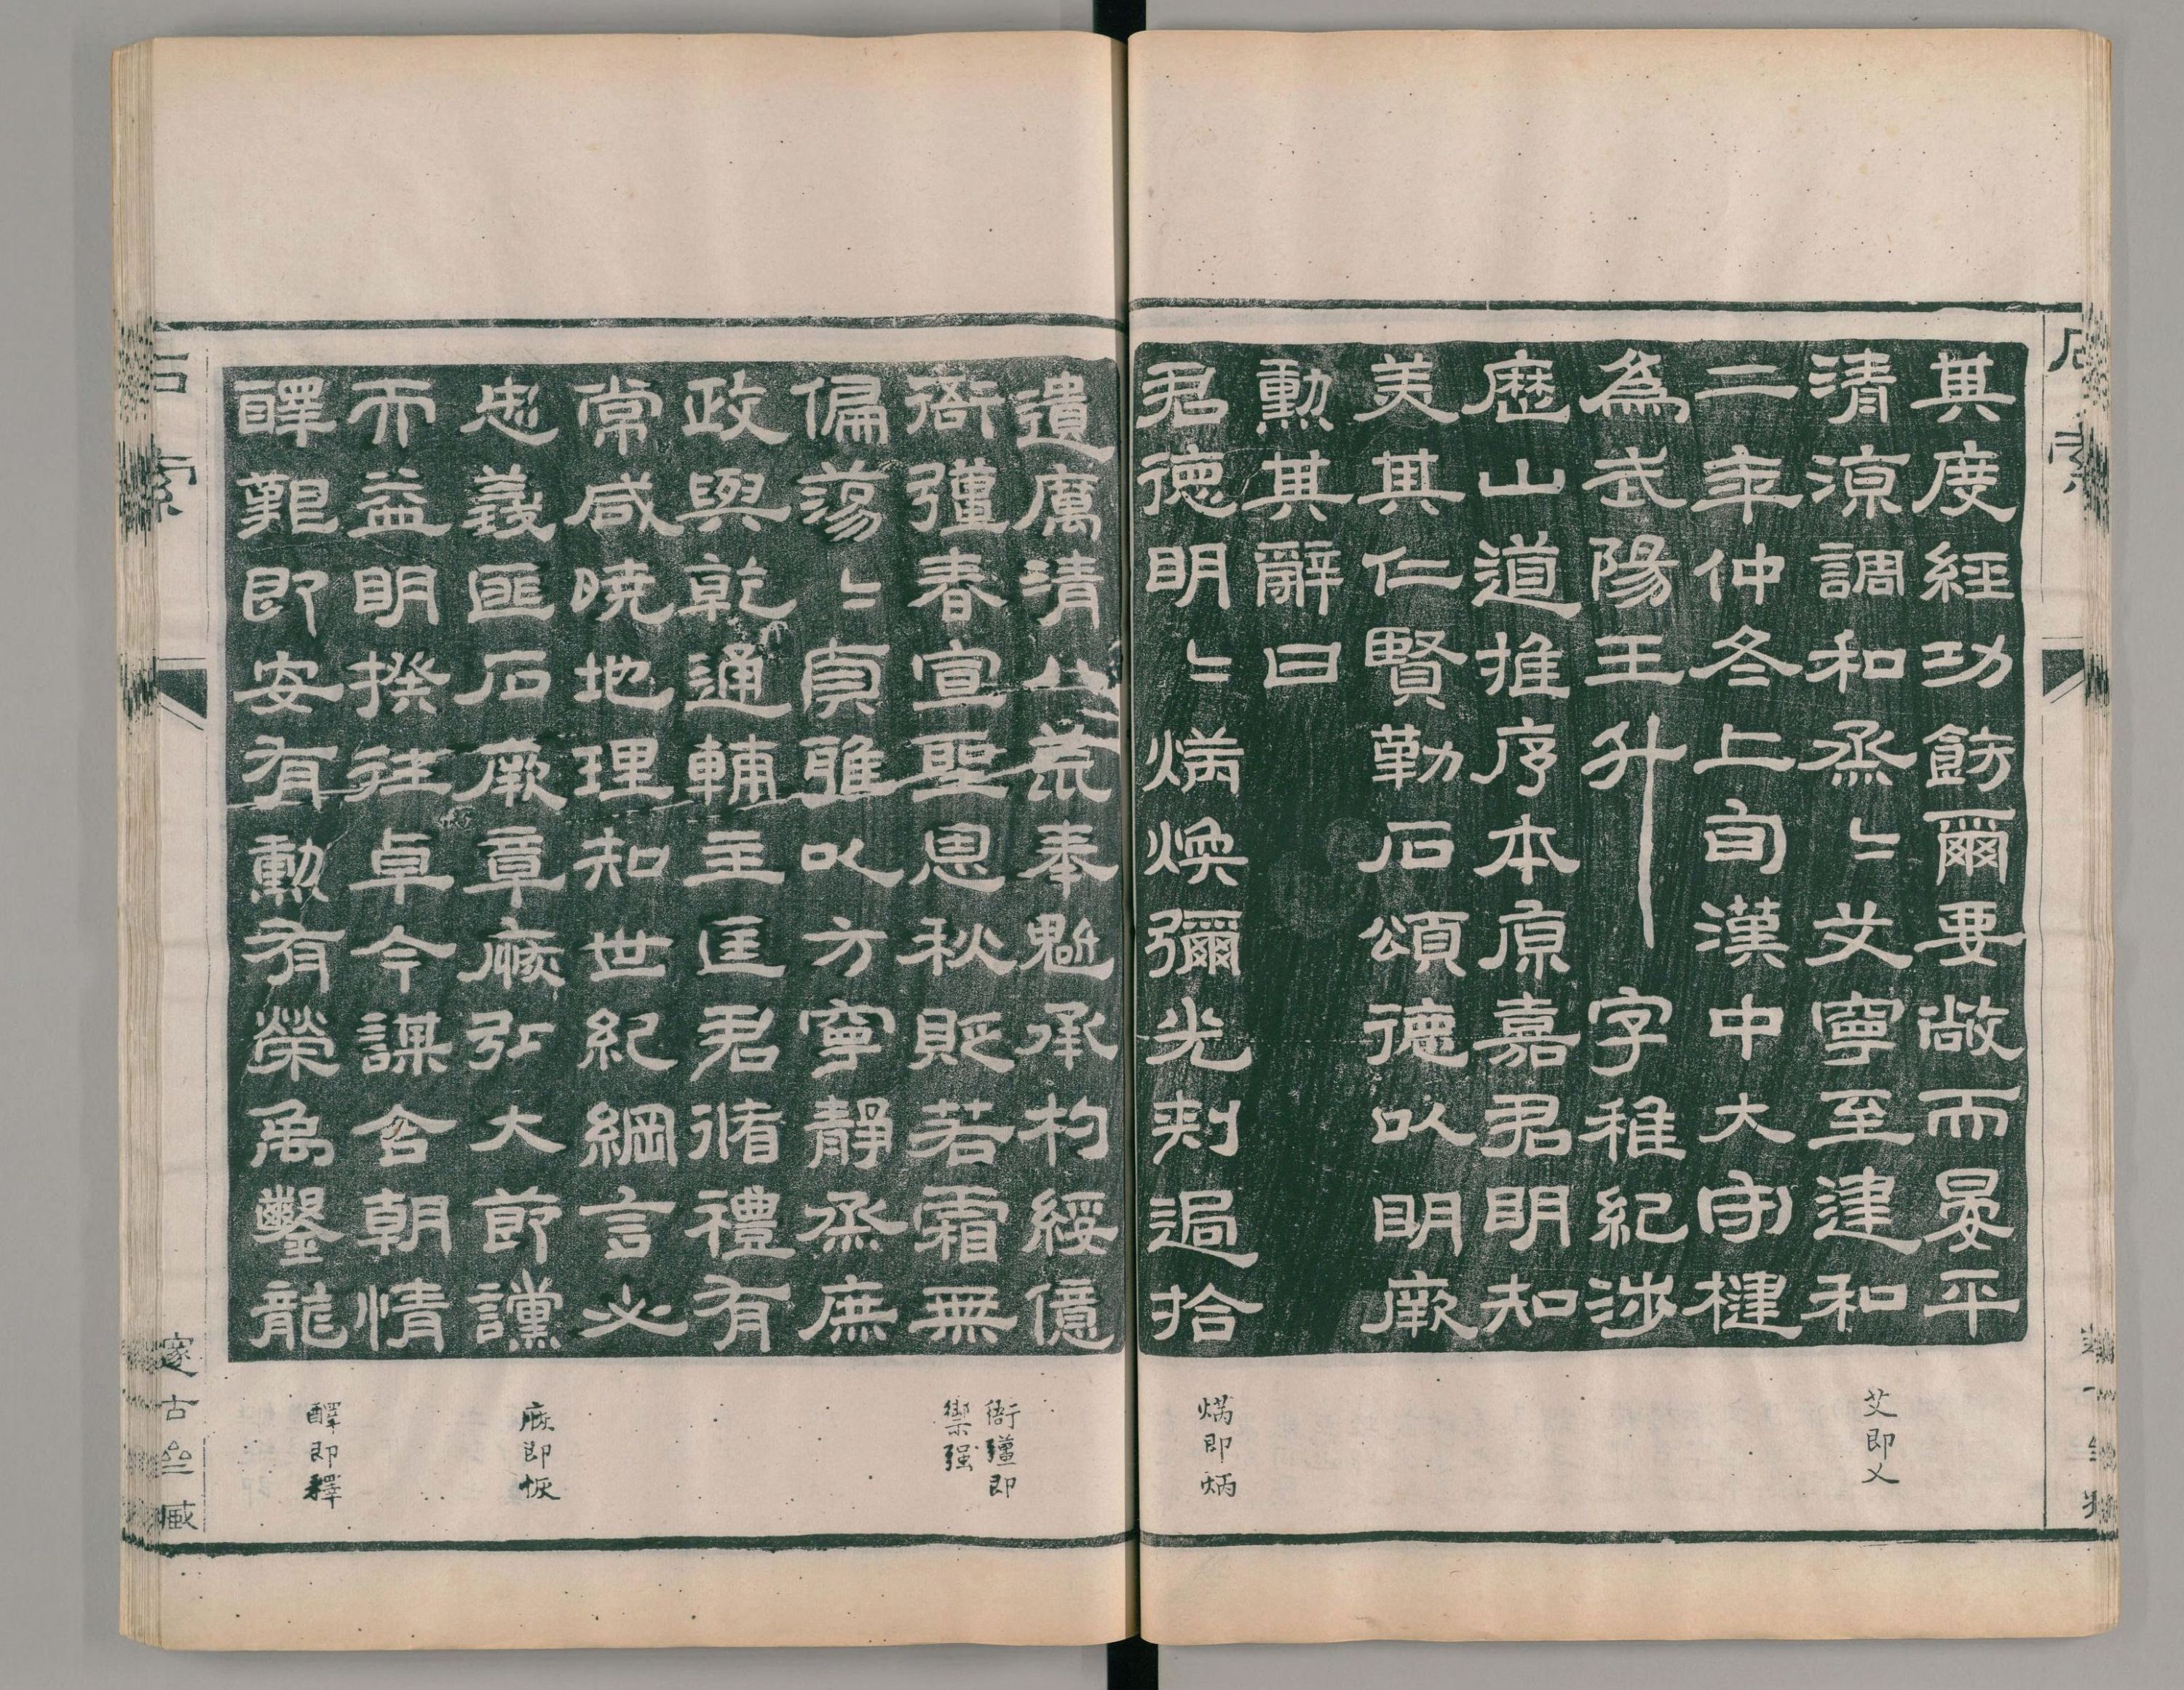 其度經功飭爾要敞而晏平
清涼調和烝〻艾寧至建和
二年仲冬上旬漢中大守楗
為武陽王升字稚紀涉
歷山道推序本原嘉君明知
美其仁賢勒石頌德以明厥
勳其辭曰
君德明〻㷸煥彌光刺過拾
遺厲清八荒奉魁承杓綏億
衙彊春宣聖恩秋貶若霜無
偏蕩〻貞雅以方寧靜烝庶
政與乾通輔主匡君循禮有
常咸曉地理知世紀綱言必
忠義匪石厥章㢠弘大節讜
而益明揆往卓今謀合朝情
醳艱即安有勳有榮禹鑿龍
艾即乂
㷸即炳
衙彊即
禦强
㢠即恢
醳即釋
石索
邃古齋藏